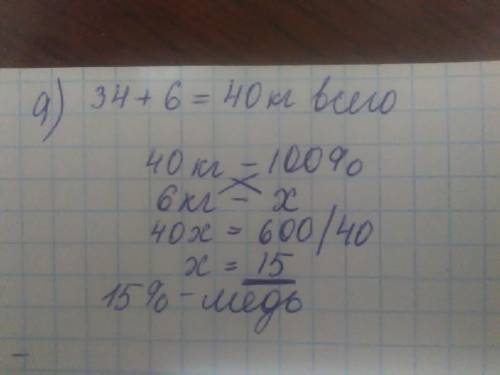 а) 34 + 6 = 40 кг всего
40 кг - 100%
6 кг - х
40х = 600/40
х = 15
15% - медь